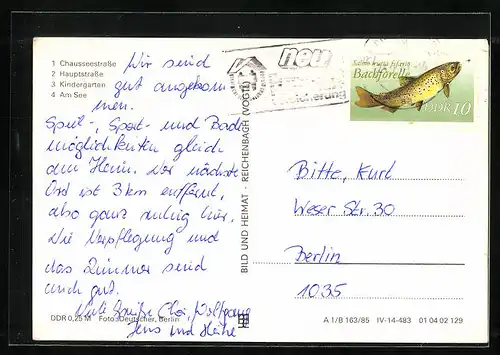 1 Chausseestraße
2 Hauptstraße
3 Kindergarten
4 Am See
Wir sind
gut angekom
men.
Spiel-, Sport- und Bade
möglichkeiten gleich
am Heim. Der nächste
Ort ist 3 km entfernt,
also ganz ruhig hier.
Die Verpflegung und
das Zimmer sind
auch gut.
Viele Grüße Wolfgang
Jens und Heike
DDR 0,25 M Foto: Deutscher, Berlin
BILD UND HEIMAT · REICHENBACH (VOGTL)
neu
Salmo trutta fario
Bachforelle
DDR 10
Bitte, Kurt
Weser Str. 30
Berlin
1035
A 1/B 163/85 IV-14-483 01 04 02 129